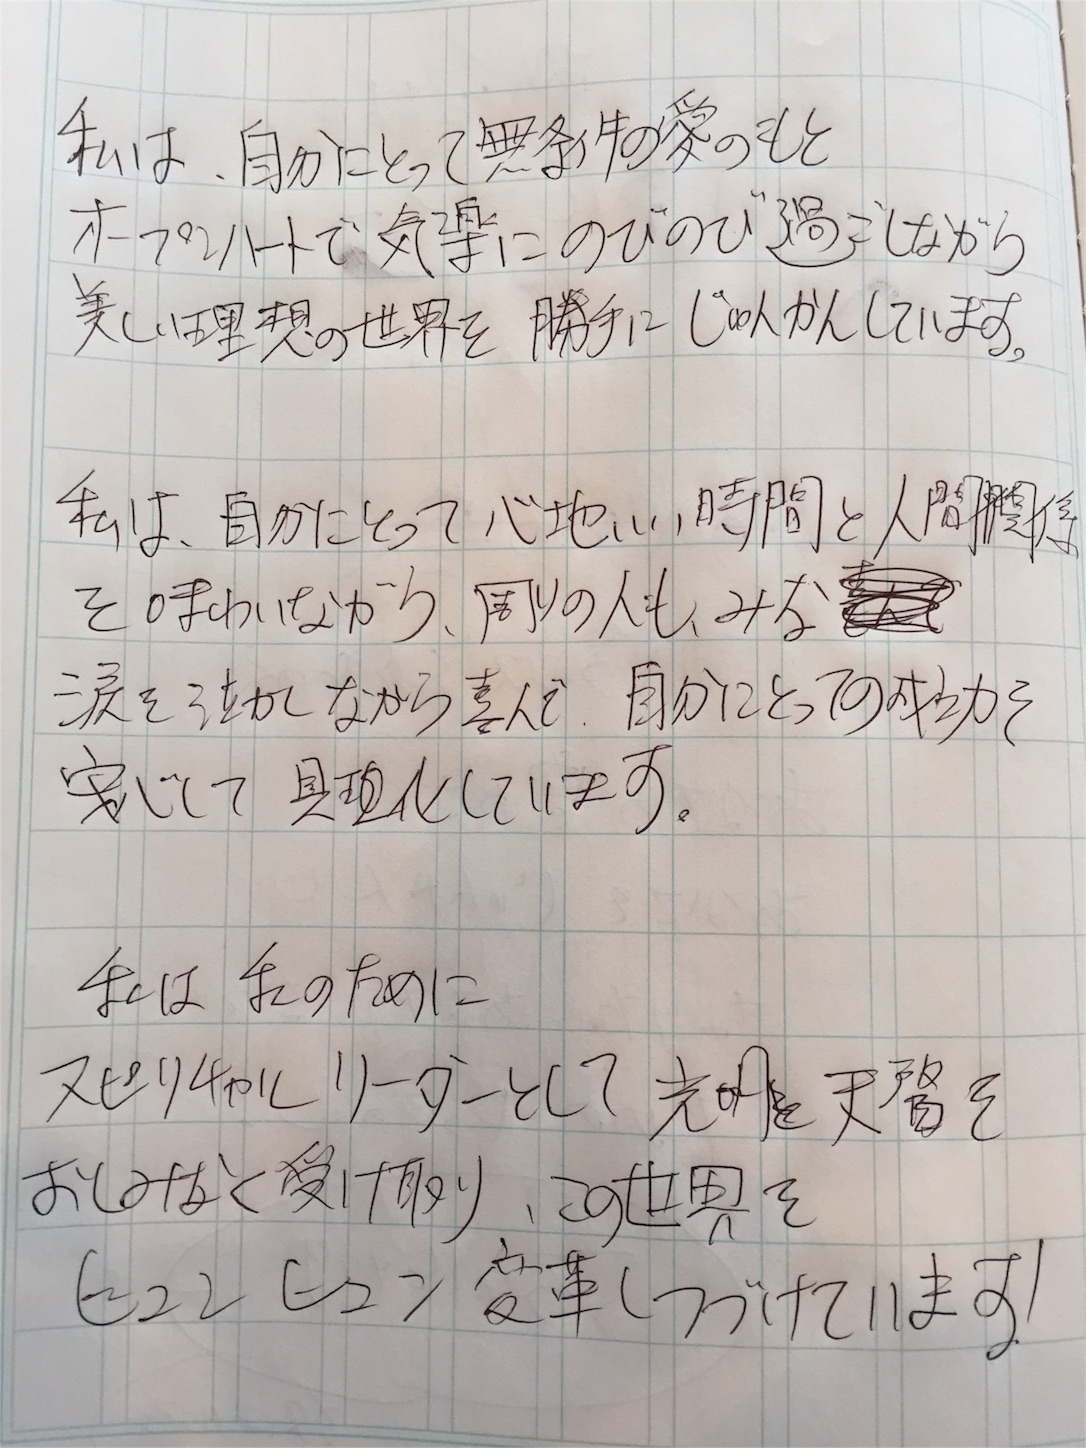 私は、自分にとって無条件の愛のもと
オープンハートで気楽にのびのび過ごしながら
美しい理想の世界を勝手にじゅんかんしています。
私は、自分にとって心地いい時間と人間関係
を味わいながら、周りの人も、みな
涙を流しながら喜んで、自分にとっての成功を
安じて具現化しています。
私は私のために
スピリチャルリーダーとして光明と天啓を
おしみなく受け取り、この世界を
ヒュンヒュン変革しつづけています!